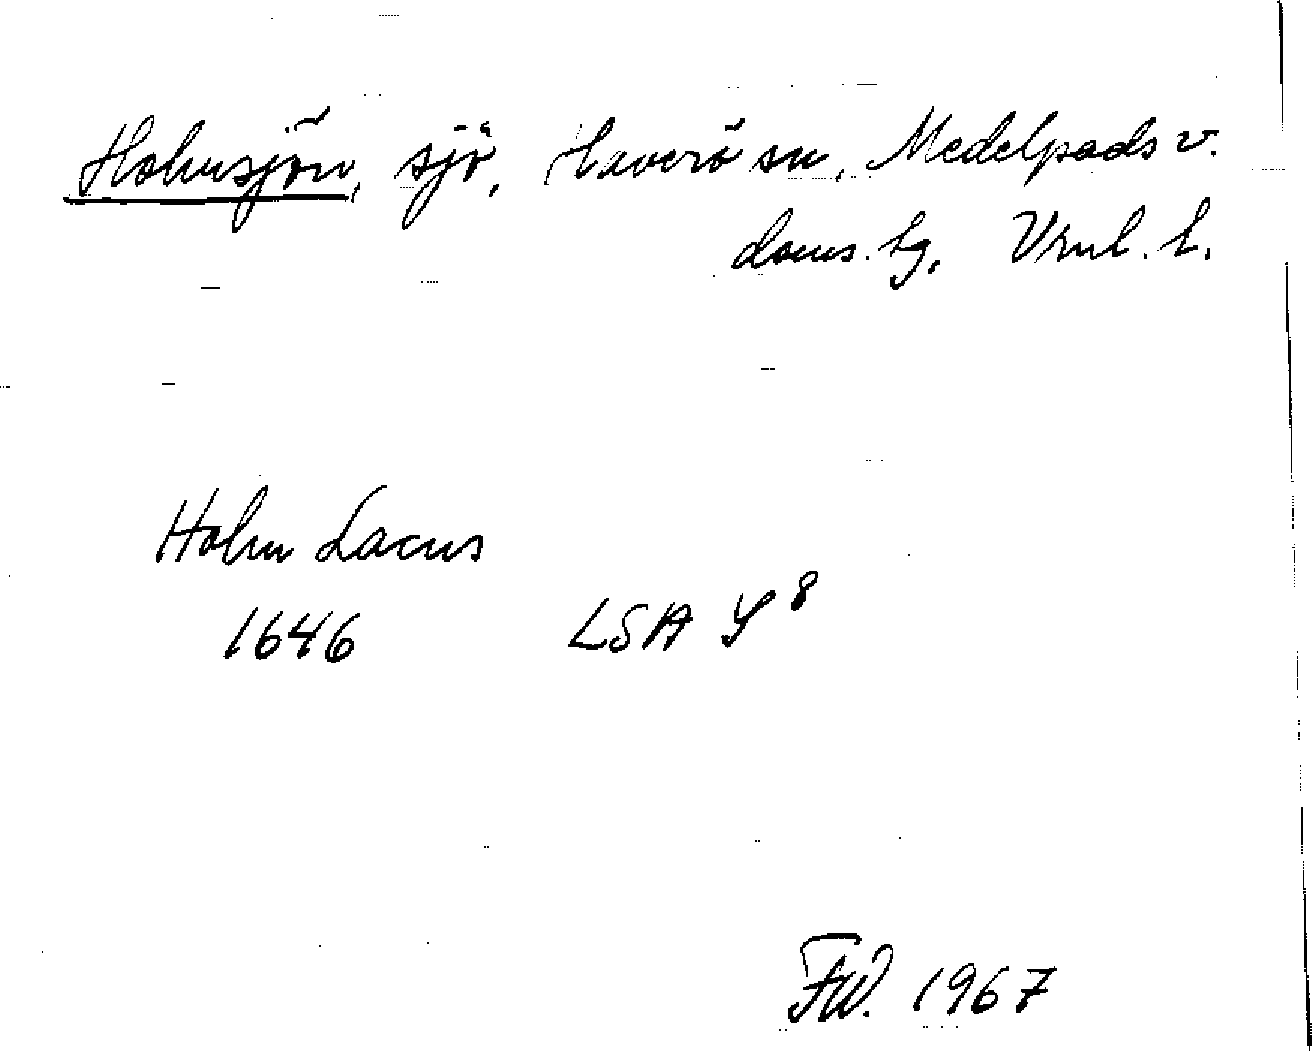 Holmsjön, sjö, Haverö sn, Medelpads v.
doms. hg, Vrnl. l.
Holm Lacus
1646 LSA Y 8
FW. 1967